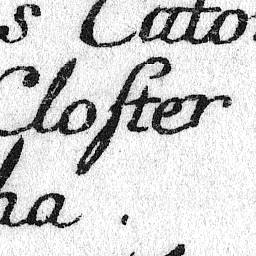 s Cato
Cloſter
ha.